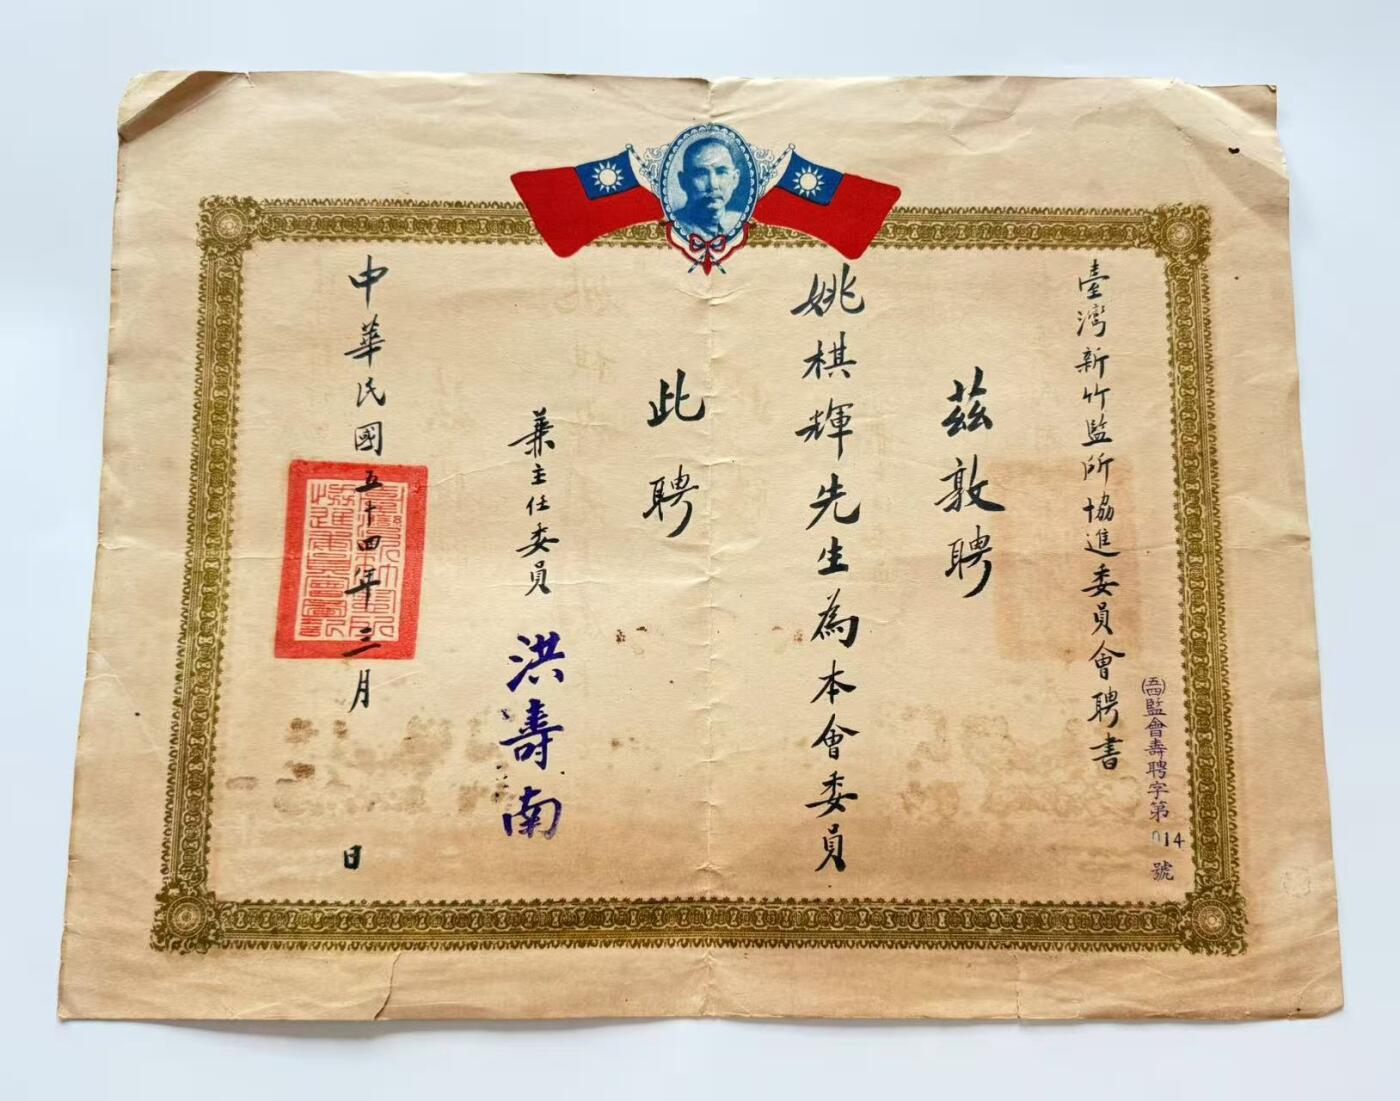 臺灣新竹監所協進委員會聘書
㊄㊃監會壽聘字第014號
茲敦聘
姚棋輝先生為本會委員
此聘
兼主任委員 洪壽南
中華民國五十四年三月 日